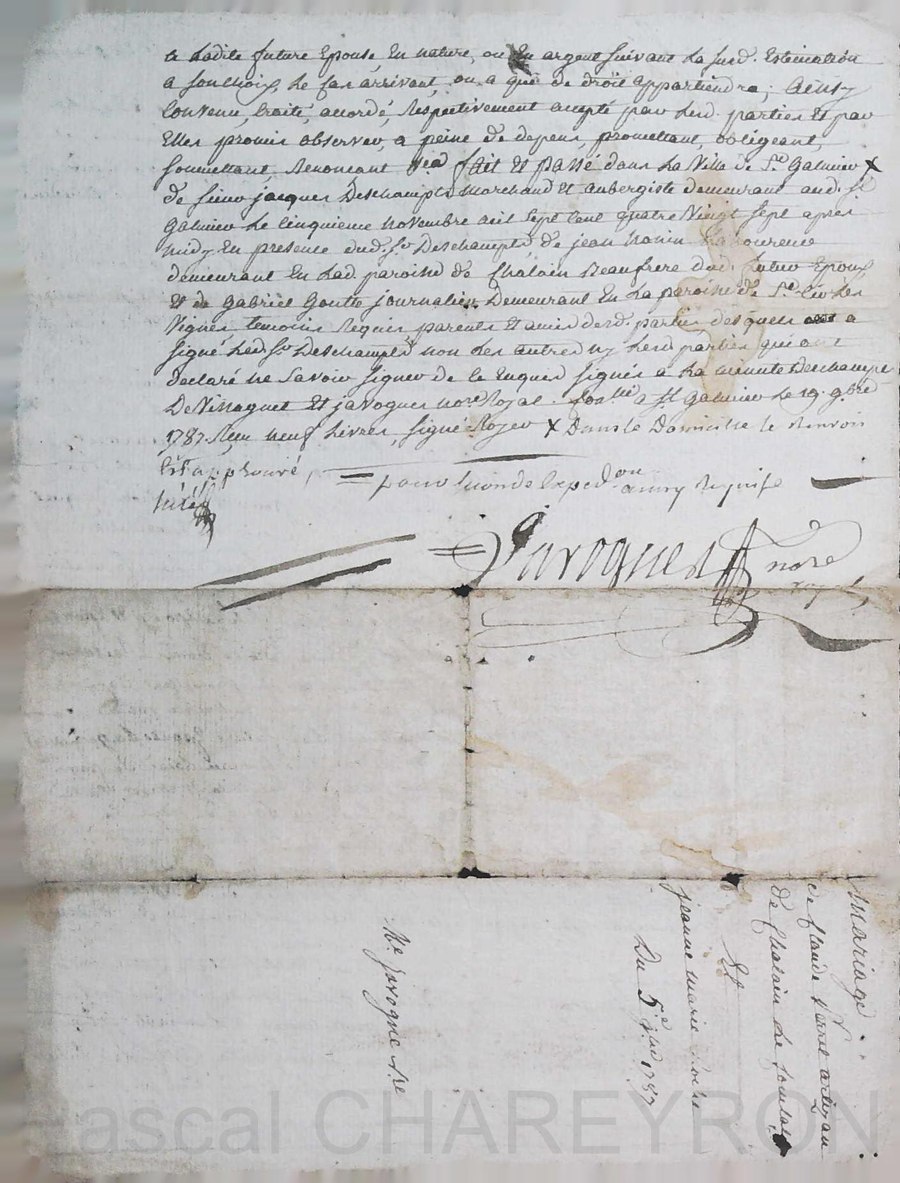 a Ladite future Epouse En nature, ou En argent suivant La susd. Estimation
a son choix, Le cas arrivant, ou a qui de droit appartiendra; ainsy
Convenu, traité, accordé, Respectivement accepté par Lesd. parties Et par
Elles promis observer, a peine de depens, promettant, obligeant,
soumettant, Renoncant fait Et passé dans La Ville de St. Galmier X
de sieur jacques Deschampts Marchand Et aubergiste demeurant aud. St
Galmier Le Cinquieme novembre mil sept Cent quatre Vingt sept apres
midy En presence dud. Sr. Deschampts, de jean Laboureur
demeurant En Lad. paroisse de Chalain Beaufrere dud. futur Epoux
Et de Gabriel Goutte journalier Demeurant En La paroisse de St. Cir Les
Vignes temoins Requis parents Et amis desd. parties desquels a
signé Led. Sr. Deschampts non Les autres ny Lesd. parties qui ont
declaré ne savoir signer de ce Enquis signés a La minute Deschampt
De Et javogues nore. Royal. a St. Galmier Le 19. 9bre
1787 Reçu neuf Livres, signé Royer X Dans le Domicille Le Renvoi
Est approuvé,
pour seconde Exped.on amoy Requise
Javogues nore
royal
Mariage
de Claude artizan
de Chalain Le Comtal
Et
jeanne marie
Du 5e. 9bre 1787
Me javogue nre